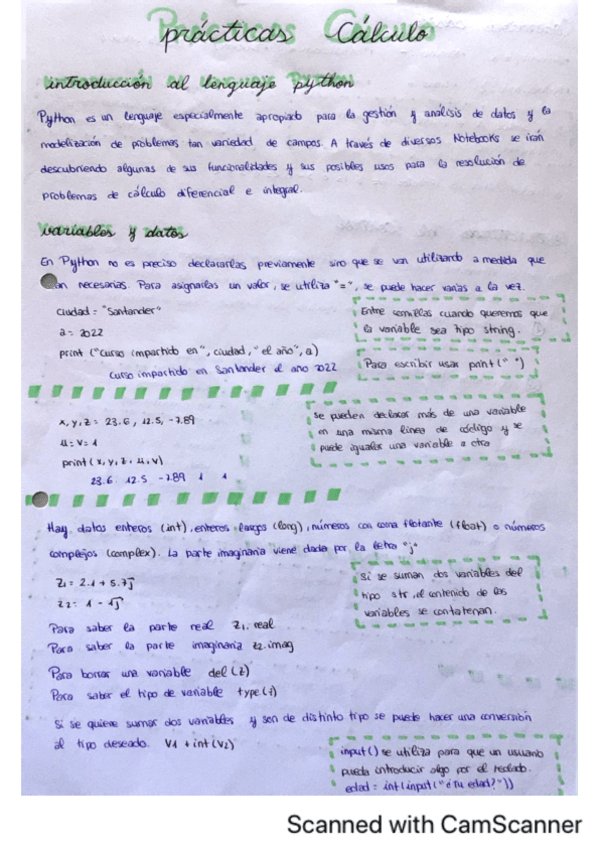 prácticas Cálculo
introducción al lenguaje python
Python es un lenguaje especialmente apropiado para la gestión y análisis de datos y la
modelización de problemas tan variedad de campos. A través de diversos Notebooks se irán
descubriendo algunas de sus funcionalidades y sus posibles usos para la resolución de
problemas de cálculo diferencial e integral.
variables y datos
En Python no es preciso declararlas previamente sino que se van utilizando a medida que
an necesarias. Para asignarlas un valor, se utiliza "=", se puede hacer varias a la vez.
ciudad = "Santander"
a = 2022
print ("Curso impartido en", ciudad, "el año", a)
Curso impartido en Santander el ano 2022
Entre comillas cuando queremos que
la variable sea tipo string.
Para escribir usar print(" ")
x, y, z = 23.6, 12.5, -7.89
u = v = 1
print (x, y, z, u, v)
23.6 12.5 -7.89 1 1
Se pueden declarar más de una variable
en una misma línea de código y se
puede igualar una variable a otra
Hay datos enteros (int), enteros largos (long), números con coma flotante (float) o números
complejos (complex). La parte imaginaria viene dada por la letra "j"
z1 = 2.1 + 5.7j
z2 = 1 - 1j
Para saber la parte real z1.real
Para saber la parte imaginaria z2.imag
Para borrar una variable del(z)
Para saber el tipo de variable type(z)
Si se suman dos variables del
tipo str, el contenido de las
variables se contatenan.
Si se quiere sumar dos variables y son de distinto tipo se puede hacer una conversión
al tipo deseado. V1 + int(V2)
input() se utiliza para que un usuario
pueda introducir algo por el teclado.
edad = int(input("¿Tu edad?"))
Scanned with CamScanner